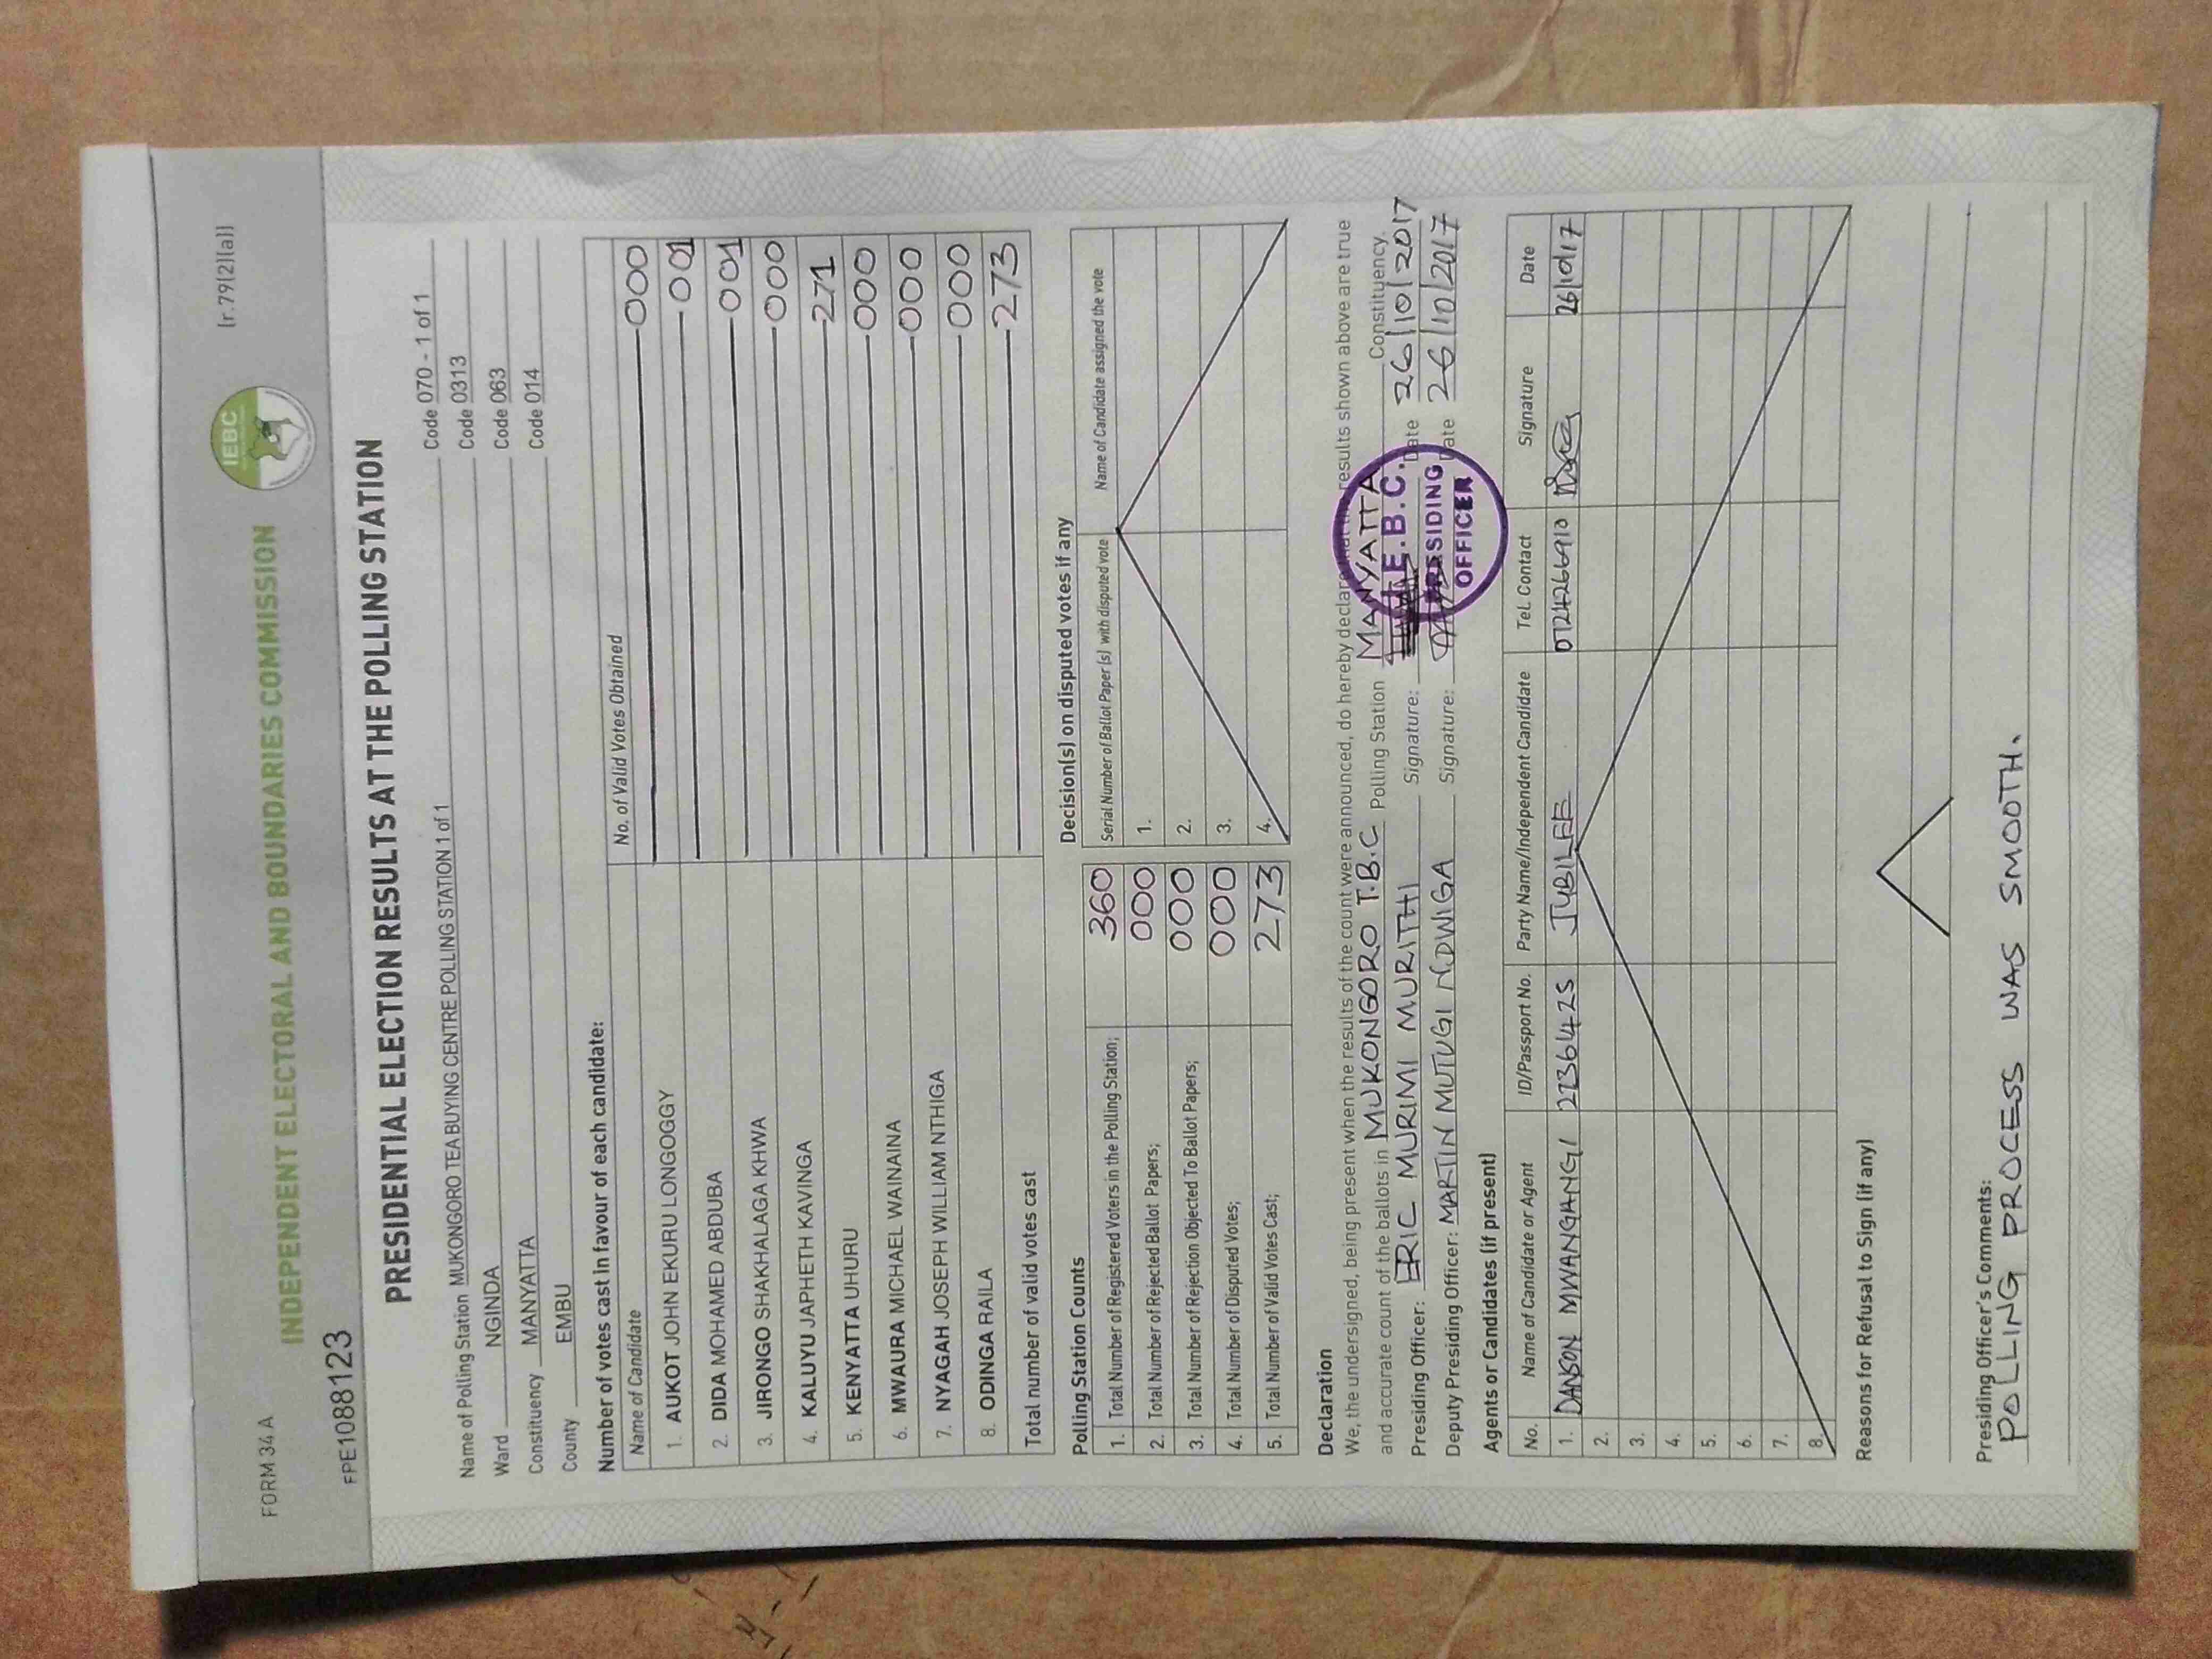 FORM 34 A [r.79(2)(a)]
IEBC
INDEPENDENT ELECTORAL AND BOUNDARIES COMMISSION
FPE1088123
PRESIDENTIAL ELECTION RESULTS AT THE POLLING STATION
Name of Polling Station MUKONGORO TEA BUYING CENTRE POLLING STATION 1 of 1 Code 070 - 1 of 1
Ward NGINDA Code 0313
Constituency MANYATTA Code 063
County EMBU Code 014
Number of votes cast in favour of each candidate:
Name of Candidate No. of Valid Votes Obtained
1. AUKOT JOHN EKURU LONGOGGY 000
2. DIDA MOHAMED ABDUBA 001
3. JIRONGO SHAKHALAGA KHWA 001
4. KALUYU JAPHETH KAVINGA 000
5. KENYATTA UHURU 271
6. MWAURA MICHAEL WAINAINA 000
7. NYAGAH JOSEPH WILLIAM NTHIGA 000
8. ODINGA RAILA 000
Total number of valid votes cast 273
Polling Station Counts
1. Total Number of Registered Voters in the Polling Station; 360
2. Total Number of Rejected Ballot Papers; 000
3. Total Number of Rejection Objected To Ballot Papers; 000
4. Total Number of Disputed Votes; 000
5. Total Number of Valid Votes Cast; 273
Decision(s) on disputed votes if any
Serial Number of Ballot Paper (s) with disputed vote Name of Candidate assigned the vote
1.
2.
3.
4.
Declaration
We, the undersigned, being present when the results of the count were announced, do hereby declare that the results shown above are true
and accurate count of the ballots in MUKONGORO T.B.C Polling Station MANYATTA Constituency.
Presiding Officer: ERIC MURIMI MURITHI Signature: Date 26/10/2017
Deputy Presiding Officer: MARTIN MUTUGI NDWIGA Signature: Date 26/10/2017
I.E.B.C.
PRESIDING
OFFICER
Agents or Candidates (if present)
No. Name of Candidate or Agent ID/Passport No. Party Name/Independent Candidate Tel. Contact Signature Date
1. DANSON MWANGANGI 22364425 JUBILEE 0724266910 26/10/17
2.
3.
4.
5.
6.
7.
8.
Reasons for Refusal to Sign (if any)
Presiding Officer's Comments:
POLLING PROCESS WAS SMOOTH.